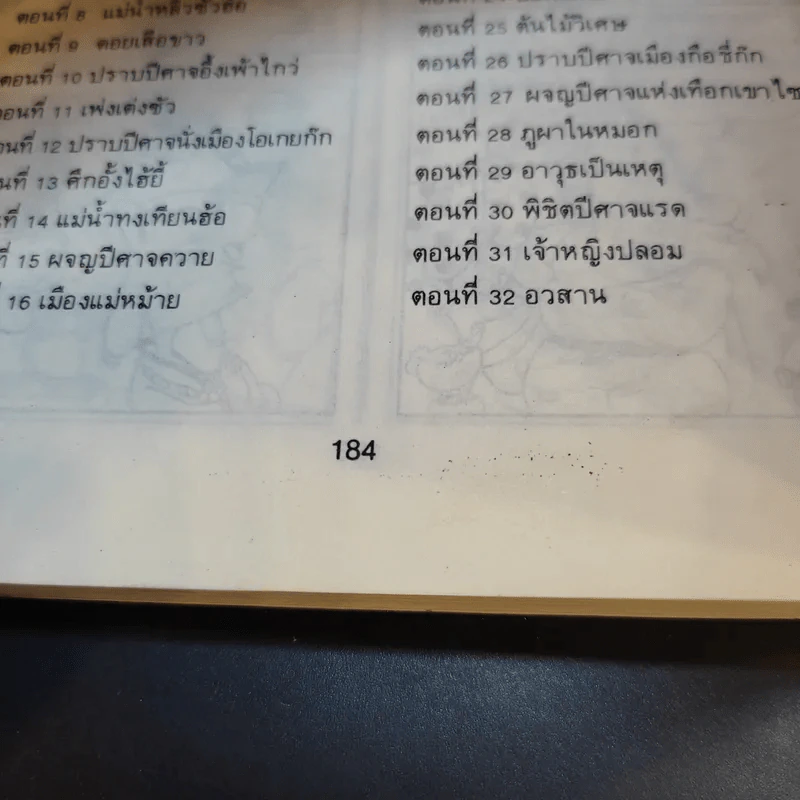 ตอนที่ 8 แม่น้ำหลิวซัวฮ้อ
ตอนที่ 9 ดอยเสือขาว
ตอนที่ 10 ปราบปีศาจอึ้งเพ้าไกว่
ตอนที่ 11 เพ่งเต่งซัว
ตอนที่ 12 ปราบปีศาจนั่งเมืองโอเกยก๊ก
ตอนที่ 13 ศึกอั้งไฮ้ยี้
ที่ 14 แม่น้ำทงเทียนฮ้อ
ที่ 15 ผจญปีศาจควาย
16 เมืองแม่หม้าย
ตอนที่ 25 ต้นไม้วิเศษ
ตอนที่ 26 ปราบปีศาจเมืองกือซี่ก๊ก
ตอนที่ 27 ผจญปีศาจแห่งเทือกเขาไซ
ตอนที่ 28 ภูผาในหมอก
ตอนที่ 29 อาวุธเป็นเหตุ
ตอนที่ 30 พิชิตปีศาจแรด
ตอนที่ 31 เจ้าหญิงปลอม
ตอนที่ 32 อวสาน
184